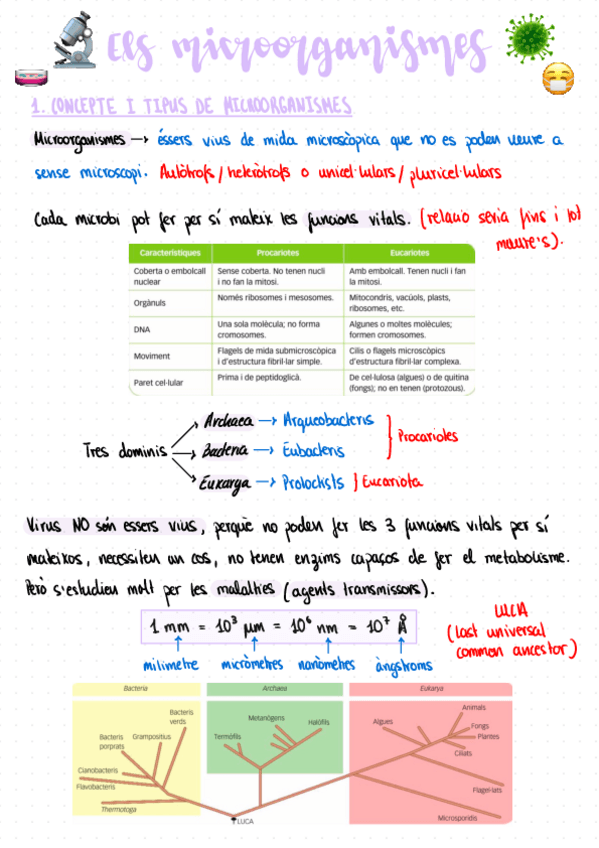 Els microorganismes
1. CONCEPTE I TIPUS DE MICROORGANISMES
Microorganismes → éssers vius de mida microscòpica que no es poden veure a
sense microscopi. Autòtrofs / heteròtrofs o unicel·lulars / pluricel·lulars
Cada microbi pot fer per sí mateix les funcions vitals. (relació seria fins i tot
Característiques Procariotes Eucariotes
Coberta o embolcall nuclear Sense coberta. No tenen nucli i no fan la mitosi. Amb embolcall. Tenen nucli i fan la mitosi.
Orgànuls Només ribosomes i mesosomes. Mitocondris, vacúols, plasts, ribosomes, etc.
DNA Una sola molècula; no forma cromosomes. Algunes o moltes molècules; formen cromosomes.
Moviment Flagels de mida submicroscòpica i d'estructura fibril·lar simple. Cilis o flagels microscòpics d'estructura fibril·lar complexa.
Paret cel·lular Prima i de peptidoglicà. De cel·lulosa (algues) o de quitina (fongs); no en tenen (protozous).
Archaea → Arqueobacteris
Tres dominis Bacteria → Eubacteris Procariotes
Eukarya → Protoctists } Eucariota
Virus NO són essers vius, perquè no poden fer les 3 funcions vitals per sí
mateixos, necessiten un cos, no tenen enzims capaços de fer el metabolisme.
Però s'estudien molt per les malalties (agents transmissors).
1 mm = 10³ µm = 10⁶ nm = 10⁷ Å
milimetre micròmetres nanòmetres àngstroms
LUCA
(last universal
common ancestor)
Bacteria Archaea Eukarya
Bacteris verds
Bacteris porprats
Grampositius
Cianobacteris
Flavobacteris
Thermotoga
Metanògens
Halòfils
Termòfils
Animals
Algues
Fongs
Plantes
Ciliats
Flagel·lats
Microsporidis
LUCA